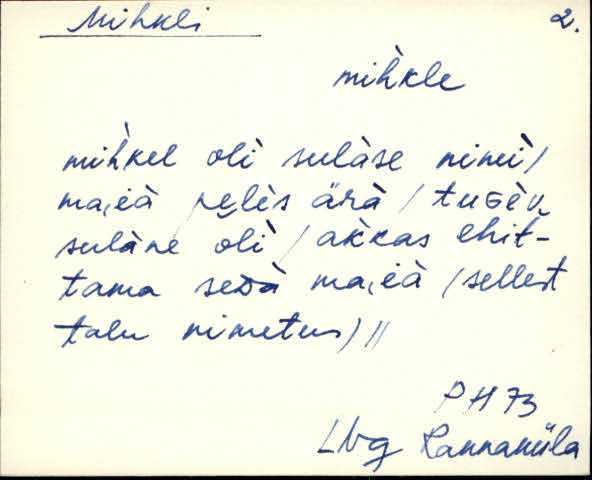 Mihkli 2.
mìh̀kle
mìh̀kel olì sulàse nimìì /
ma,ià pèlès ärà / tuGèv
sulàne òlì / akkas ehit-
tama seDà ma,ià (sellest
talu nimetus) //
PH 73
Lbg Rannamõisa